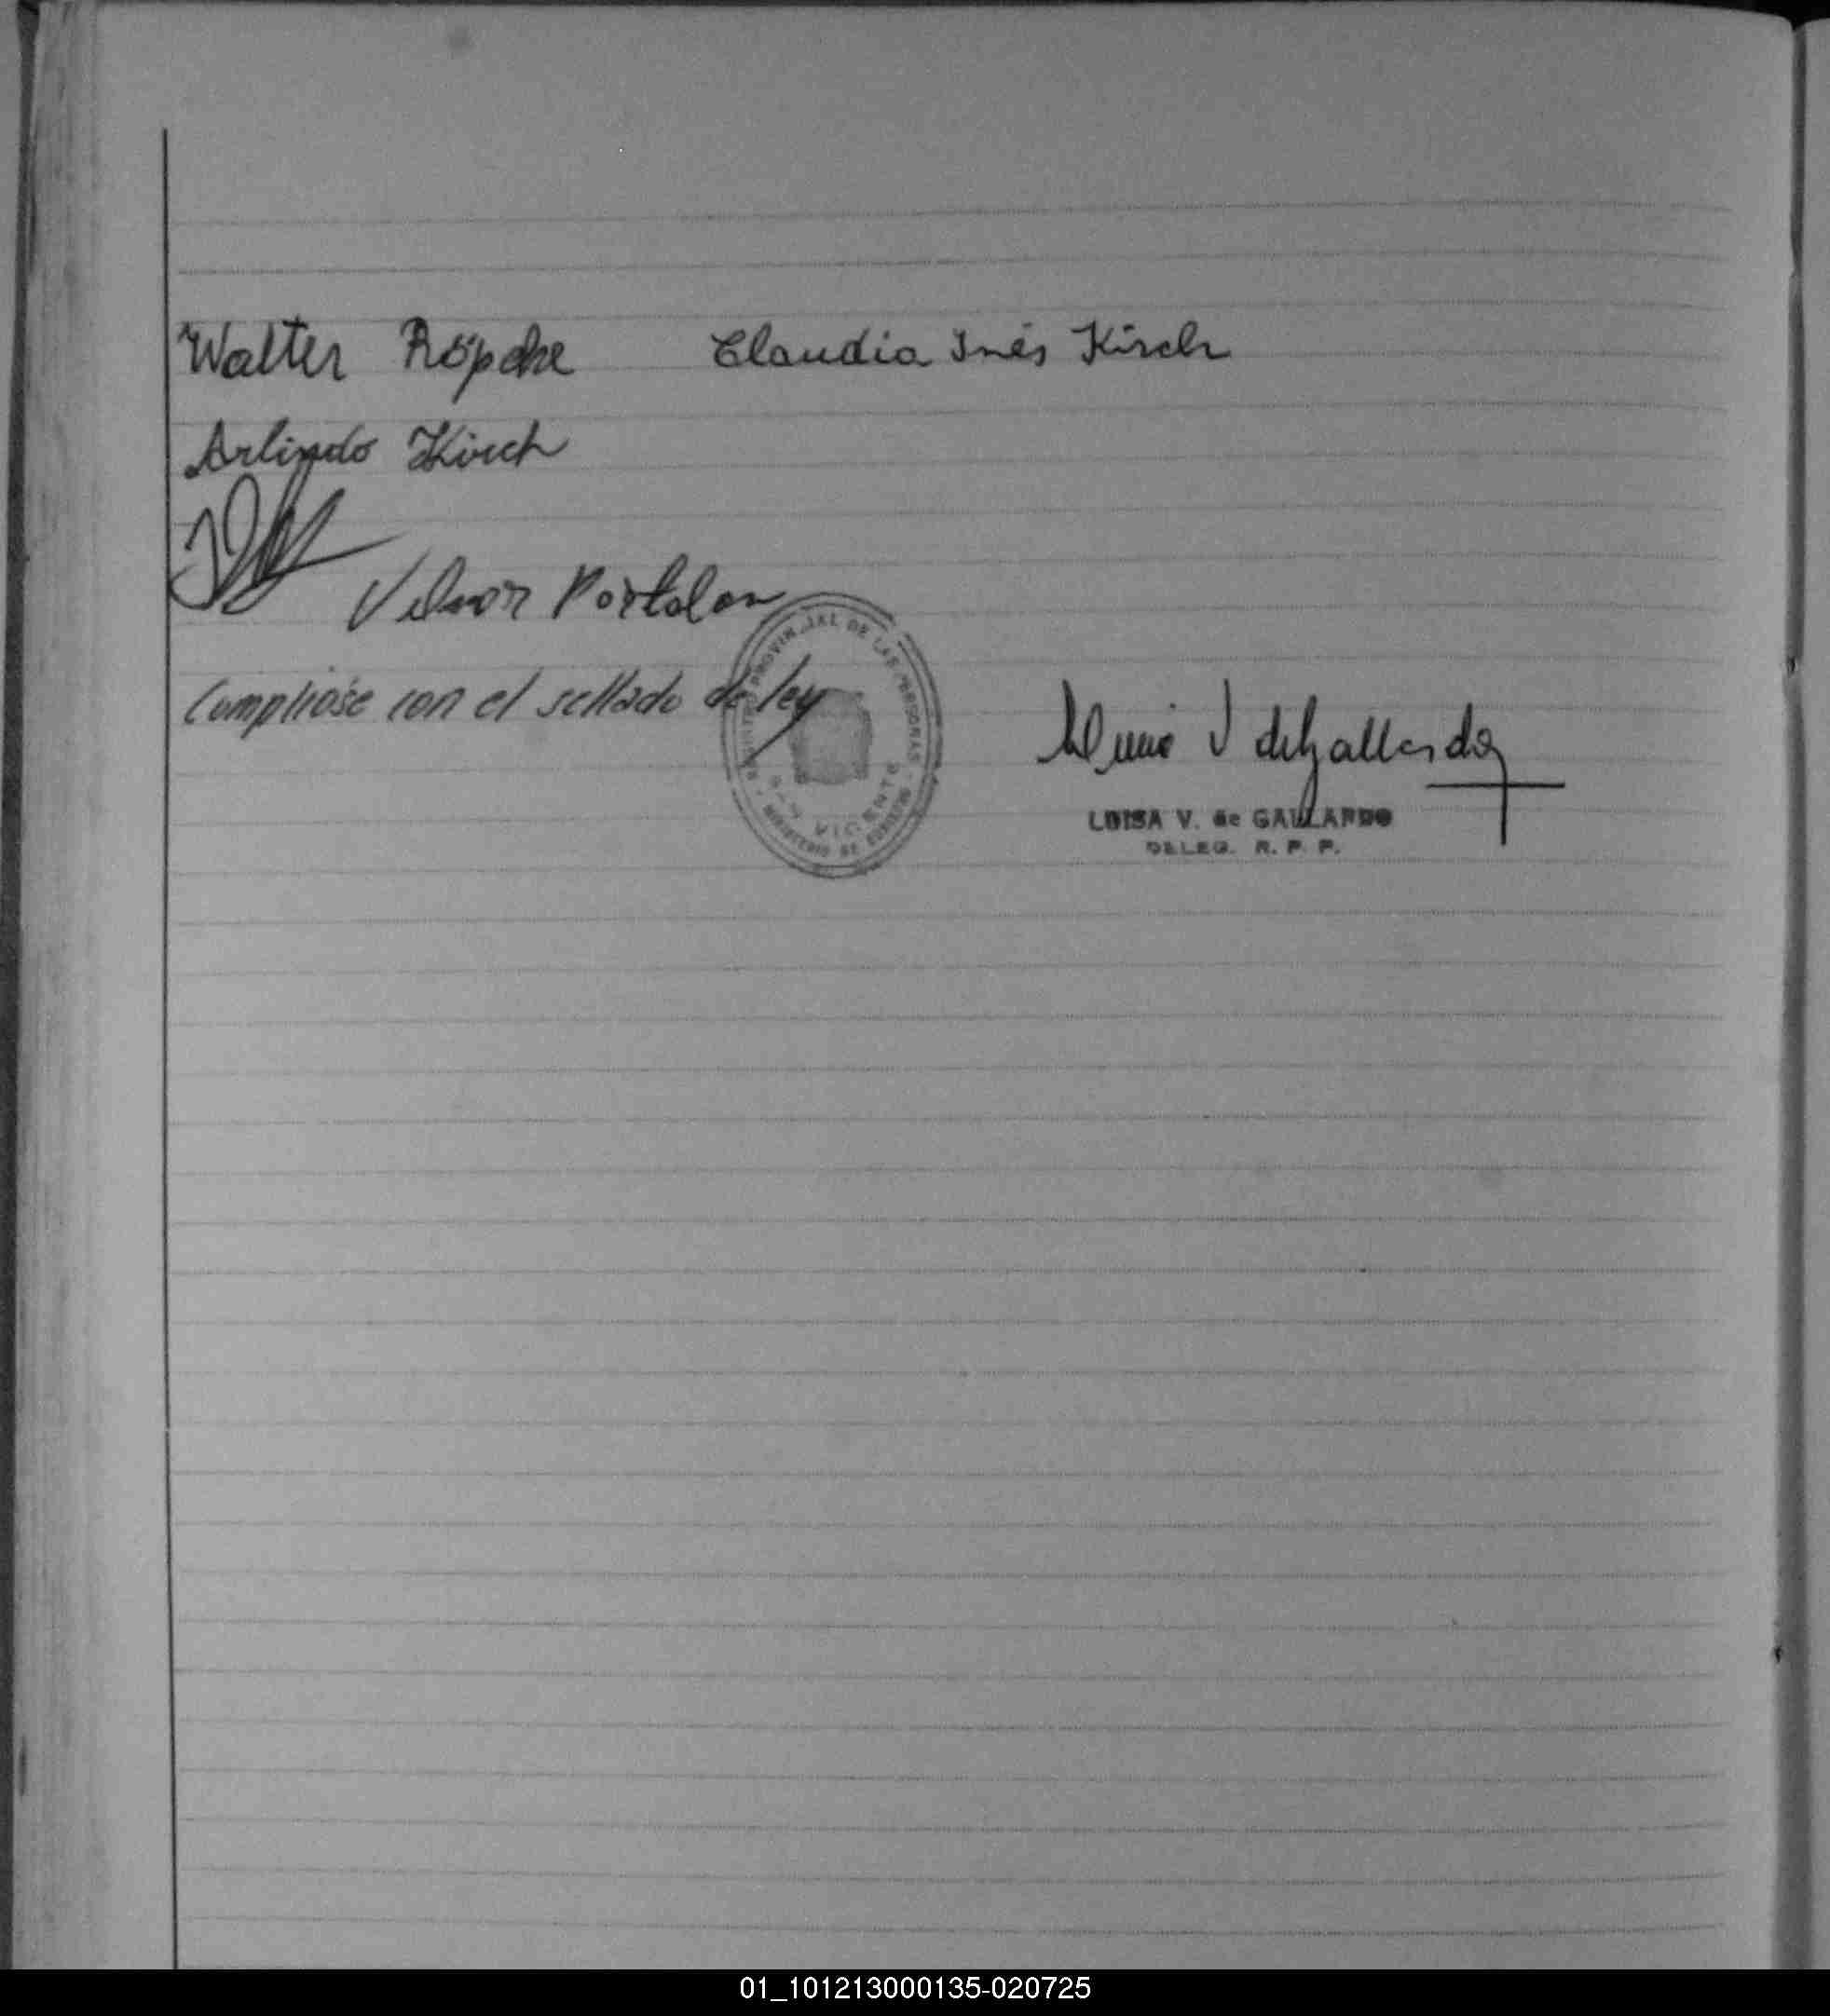 Walter Röpcke Claudia Inés Kirch
Arlindo Kirch
Vilmar Portalan
Complióse con el sellado de ley
REGISTRO PROVINCIAL DE LAS PERSONAS
SAN VICENTE
MINISTERIO DE GOBIERNO
V de Gallardo
LUISA V. de GALLARDO
DELEG. R. P. P.
01_101213000135-020725